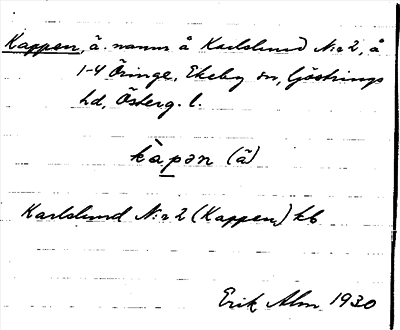 Kappen, ä. namn å Karlslund N:o 2, å
1-4 Öringe, Ekeby sn, Göstrings
hd, Österg. l.
kàpən (ä)
Karlslund N:o 2 (Kappen) kb
Erik Alm 1930